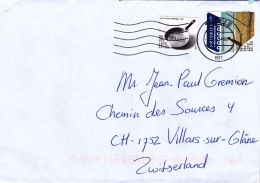 Mr Jean Paul Gremion
Chemin des Sources 4
CH-1752 Villars-sur-Glâne
Zwitserland